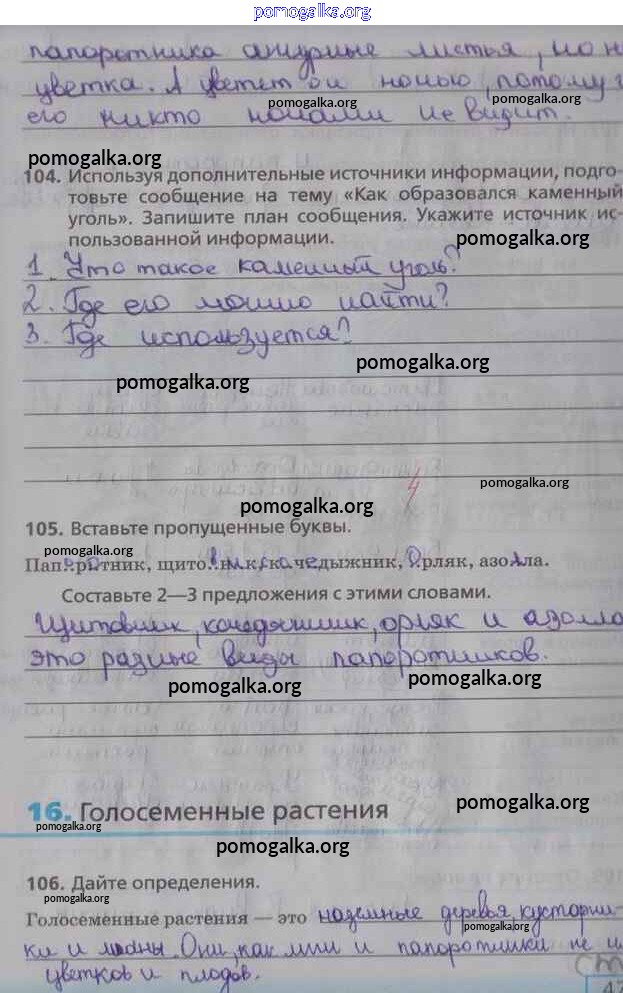 pomogalka.org
папоротника ажурные листья, но н
цветка. А цветет он ночью, потому ч
pomogalka.org
pomogalka.org
его никто ночами не видит.
pomogalka.org
104. Используя дополнительные источники информации, подго-
товьте сообщение на тему «Как образовался каменный
уголь». Запишите план сообщения. Укажите источник ис-
пользованной информации.
pomogalka.org
1. Что такое каменный уголь?
2. Где его можно найти?
3. Где используется?
pomogalka.org
pomogalka.org
4
pomogalka.org
pomogalka.org
105. Вставьте пропущенные буквы.
pomogalka.org
Папоротник, щитовник, кочедыжник, Орляк, азолла.
Составьте 2—3 предложения с этими словами.
Щитовник, кочедыжник, орляк и азолла
это разные виды папоротников.
pomogalka.org
pomogalka.org
16. Голосеменные растения
pomogalka.org
pomogalka.org
pomogalka.org
106. Дайте определения.
pomogalka.org
Голосеменные растения — это наземные деревья, кустарни-
pomogalka.org
ки и лианы. Они, как мхи и папоротники не и
цветков и плодов.
pomogalka.org
47